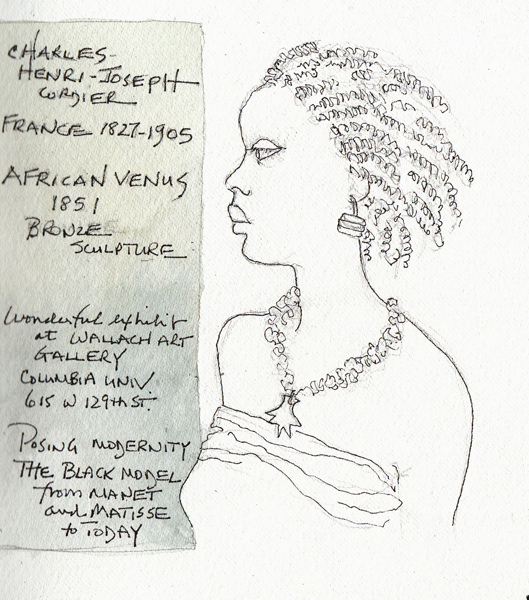 CHARLES-
HENRI-JOSEPH
CORDIER
FRANCE 1827-1905
AFRICAN VENUS
1851
BRONZE
SCULPTURE
Wonderful exhibit
at WALLACH ART
GALLERY
COLUMBIA UNIV.
615 W 129TH ST.
POSING MODERNITY
THE BLACK MODEL
from MANET
and MATISSE
to TODAY